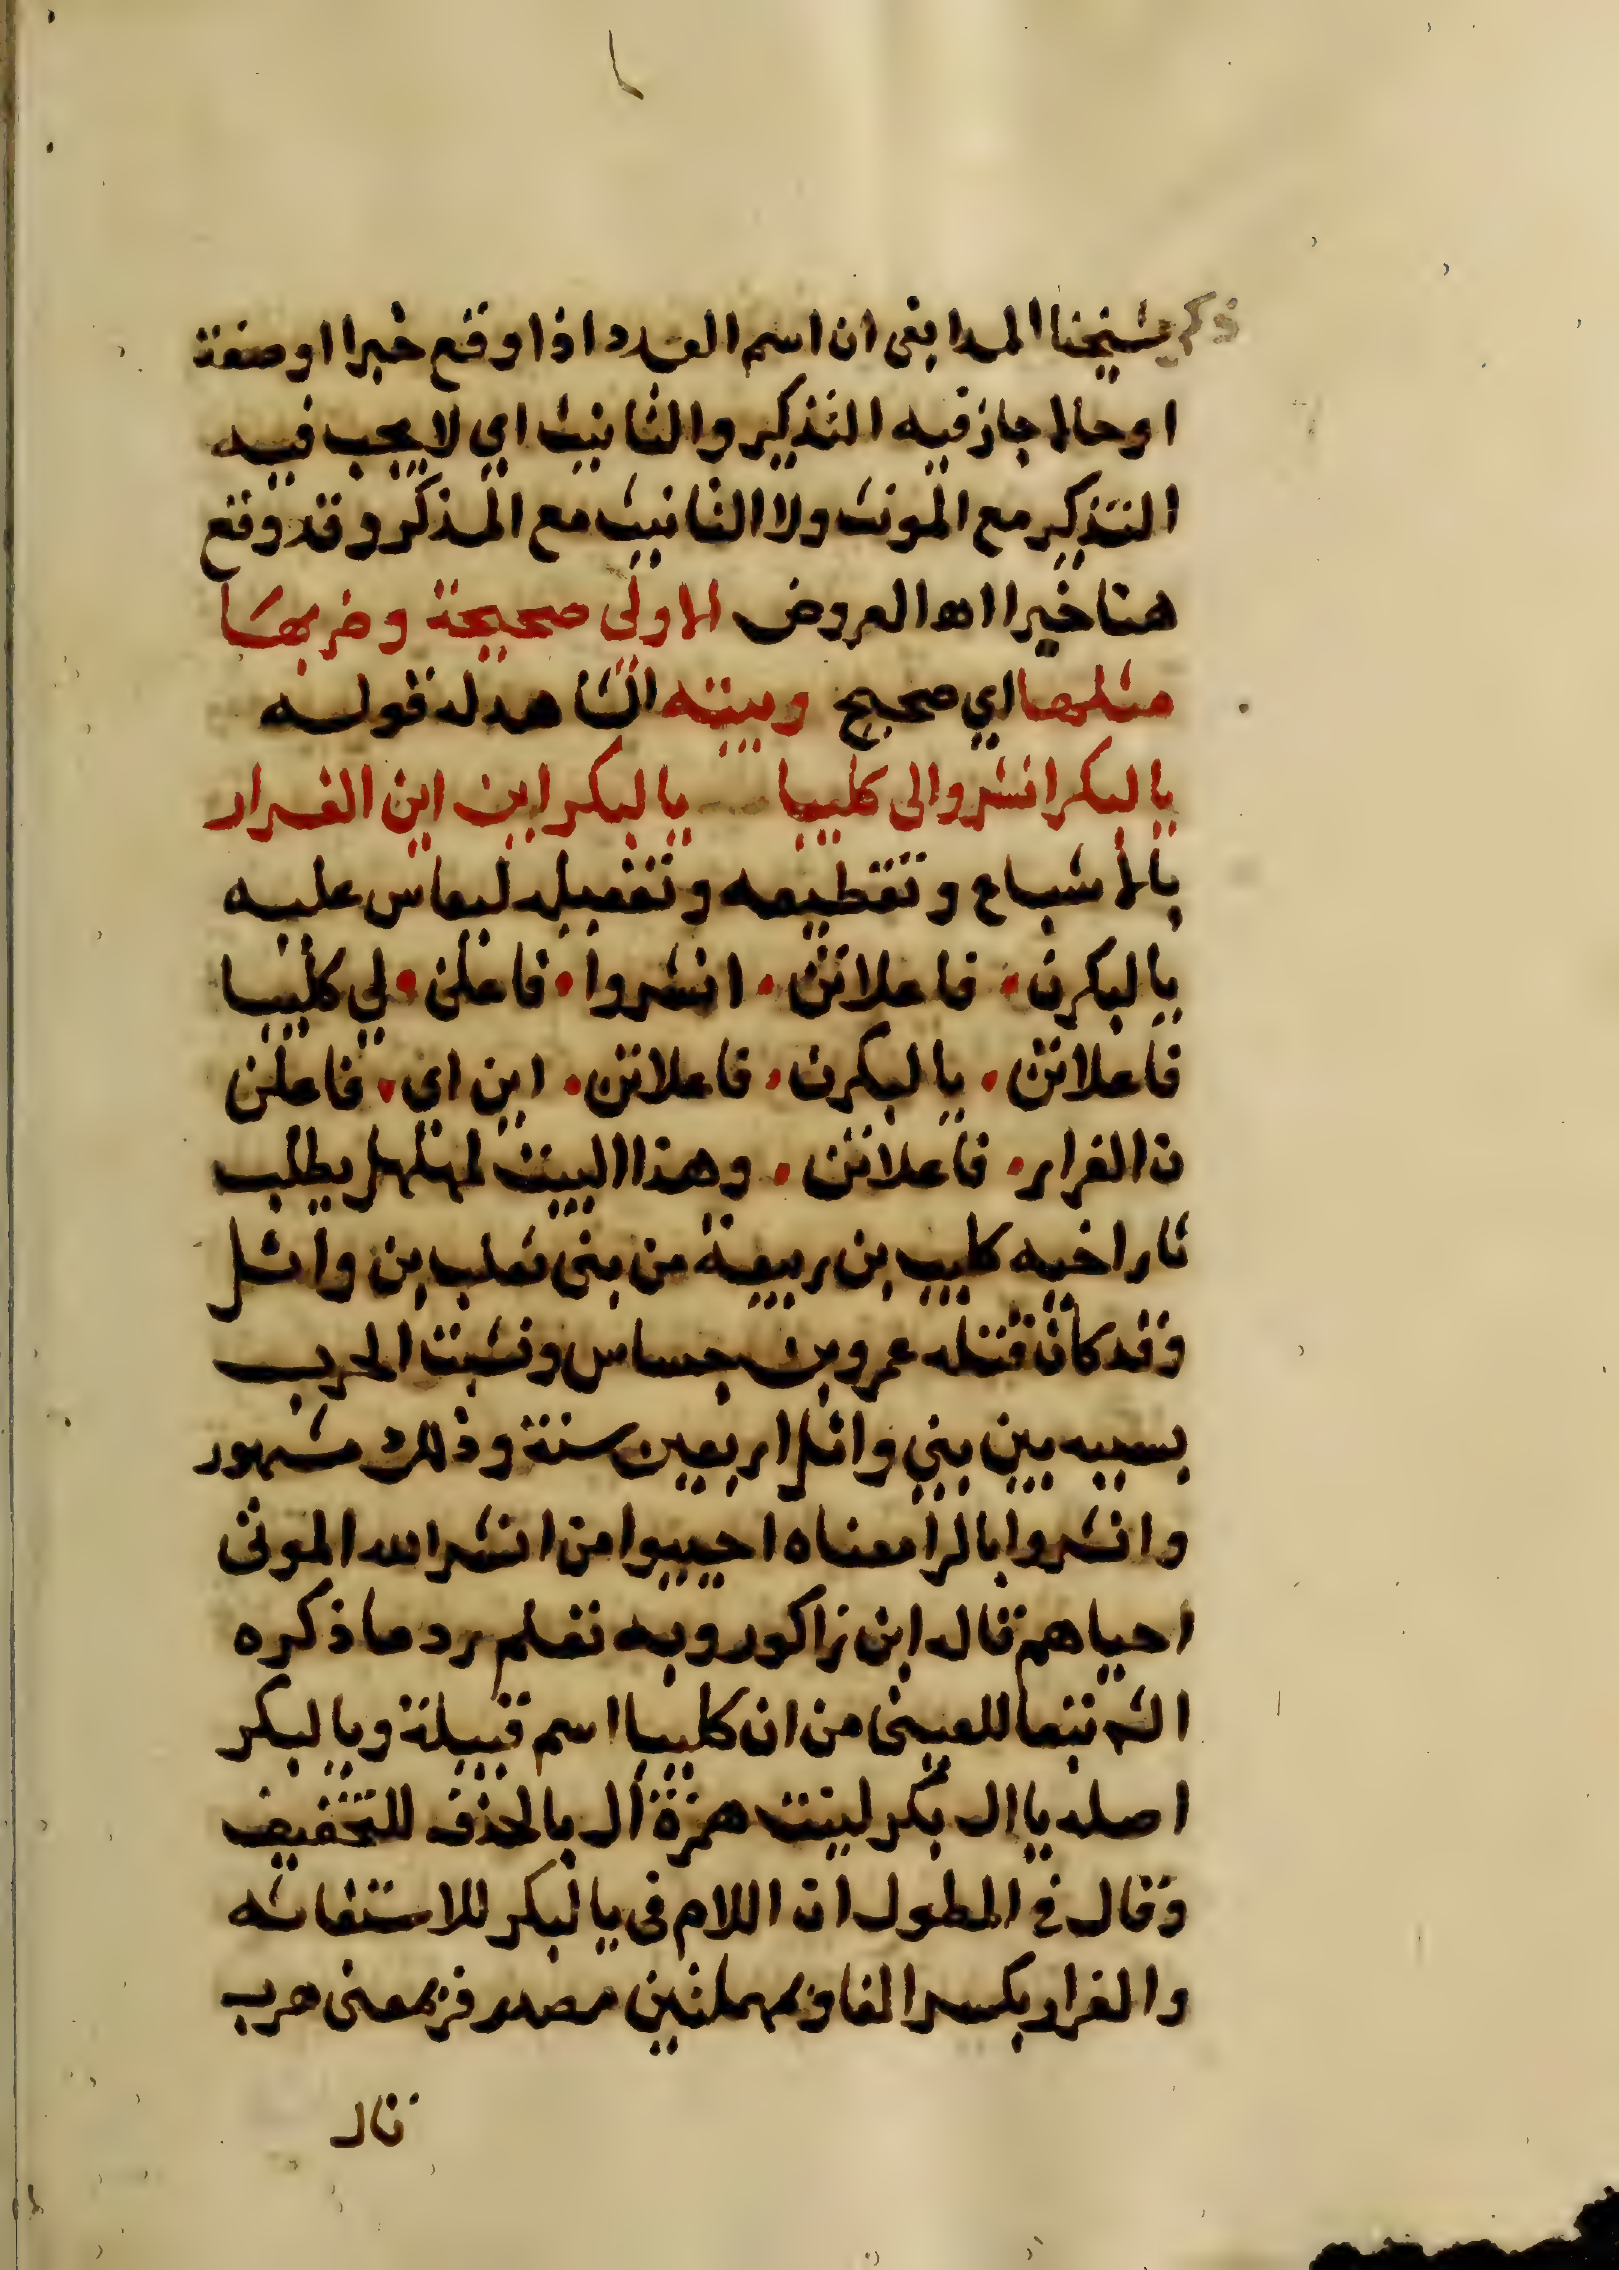 ذكر شيخنا المدابغى ان اسم العدد اذا وقع خبرا او صفة
او حالا جاز فيه التذكير والتانيث اي لا يجب فيه
التذكير مع المونث ولا التانيث مع المذكر وقد وقع
هنا خبرا اه العروض الاولى صحيحة وضربها
مثلها اي صحيح وبيته الشاهد له قوله
يا لبكر انشروا لى كليبا يا لبكر اين اين الفرار
بالاشباع وتقطيعه وتفعيله ليقاس عليه
يا لبكرن . فاعلاتن . انشروا . فاعلن . لي كليبا
فاعلاتن . يا لبكرن . فاعلاتن . اين اي . فاعلن
ن الفرار . فاعلاتن . وهذا البيت لمهلهل يطلب
ثار اخيه كليب بن ربيعة من بنى تغلب بن وائل
وقد كان قتله عمرو بن جساس ونشبت الحرب
بسببه بين بني وائل اربعين سنة وذلك مشهور
وانشروا بالرا معناه احييوا من انشر الله الموتى
احياهم قاله ابن زاكور وبه تعلم رد ما ذكره
الشه تبعا للعينى من ان كليبا اسم قبيلة ويا لبكر
اصله يا ال بكر لينت همزة أل بالحذف للتخفيف
وقال في المطول ان اللام فى يا لبكر للاستغاثه
والفرار بكسر الفا وبمهملتين مصدر فر بمعنى هرب
قال